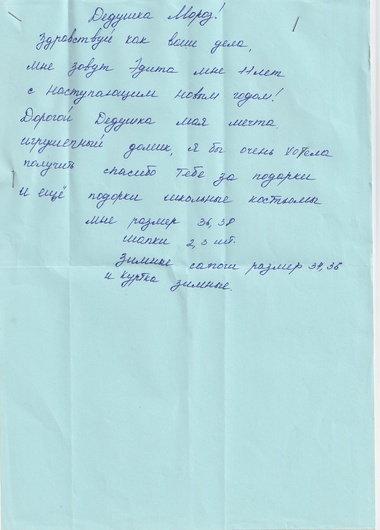 Дедушка Мороз!
Здравствуй как ваши дела,
мне зовут Эдита мне 11 лет
с наступающим новым годом!
Дорогой Дедушка мая мечта
игрушечный домик, я бы очень хотела
получить спасибо тебе за подарки
и ещё подорки школьные костюмы
мне размер 36, 38
шапки 2, 3 шт.
Зимние сапоги размер 37, 36
и куртка зимные.